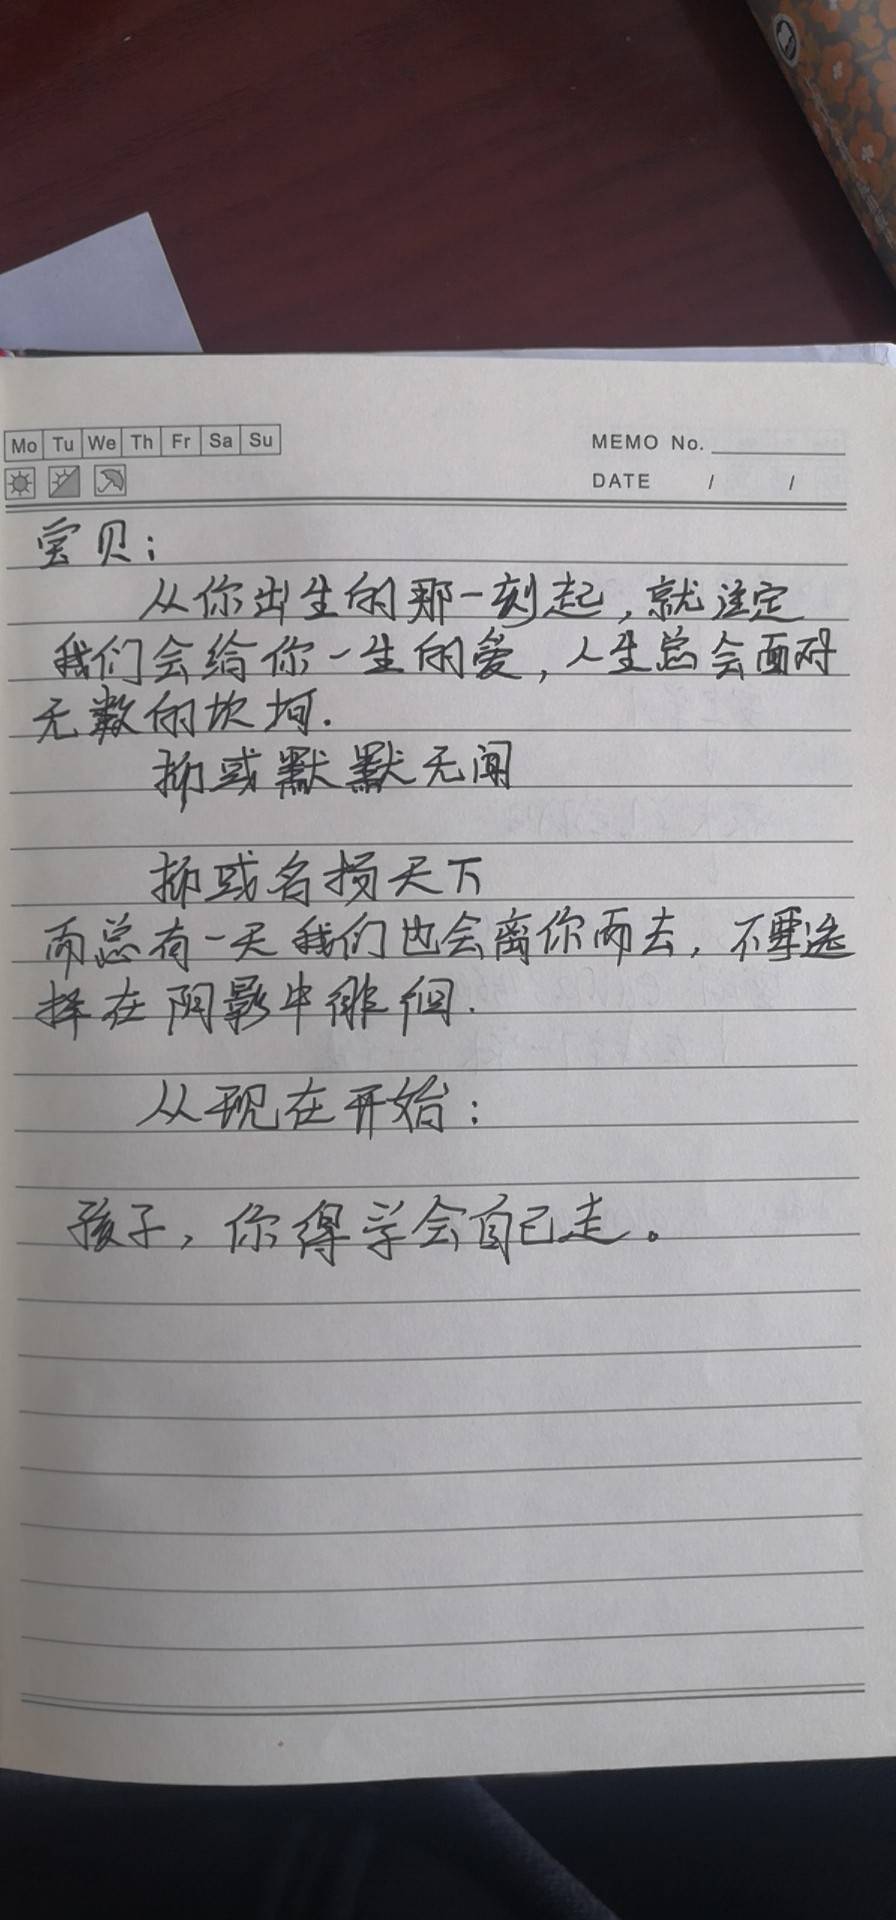 Mo Tu We Th Fr Sa Su
MEMO No.
DATE / /
宝贝：
从你出生的那一刻起，就注定
我们会给你一生的爱，人生总会面对
无数的坎坷.
抑或默默无闻
抑或名损天下
而总有一天我们也会离你而去，不要选
择在阴影中徘徊.
从现在开始：
孩子，你得学会自己走。